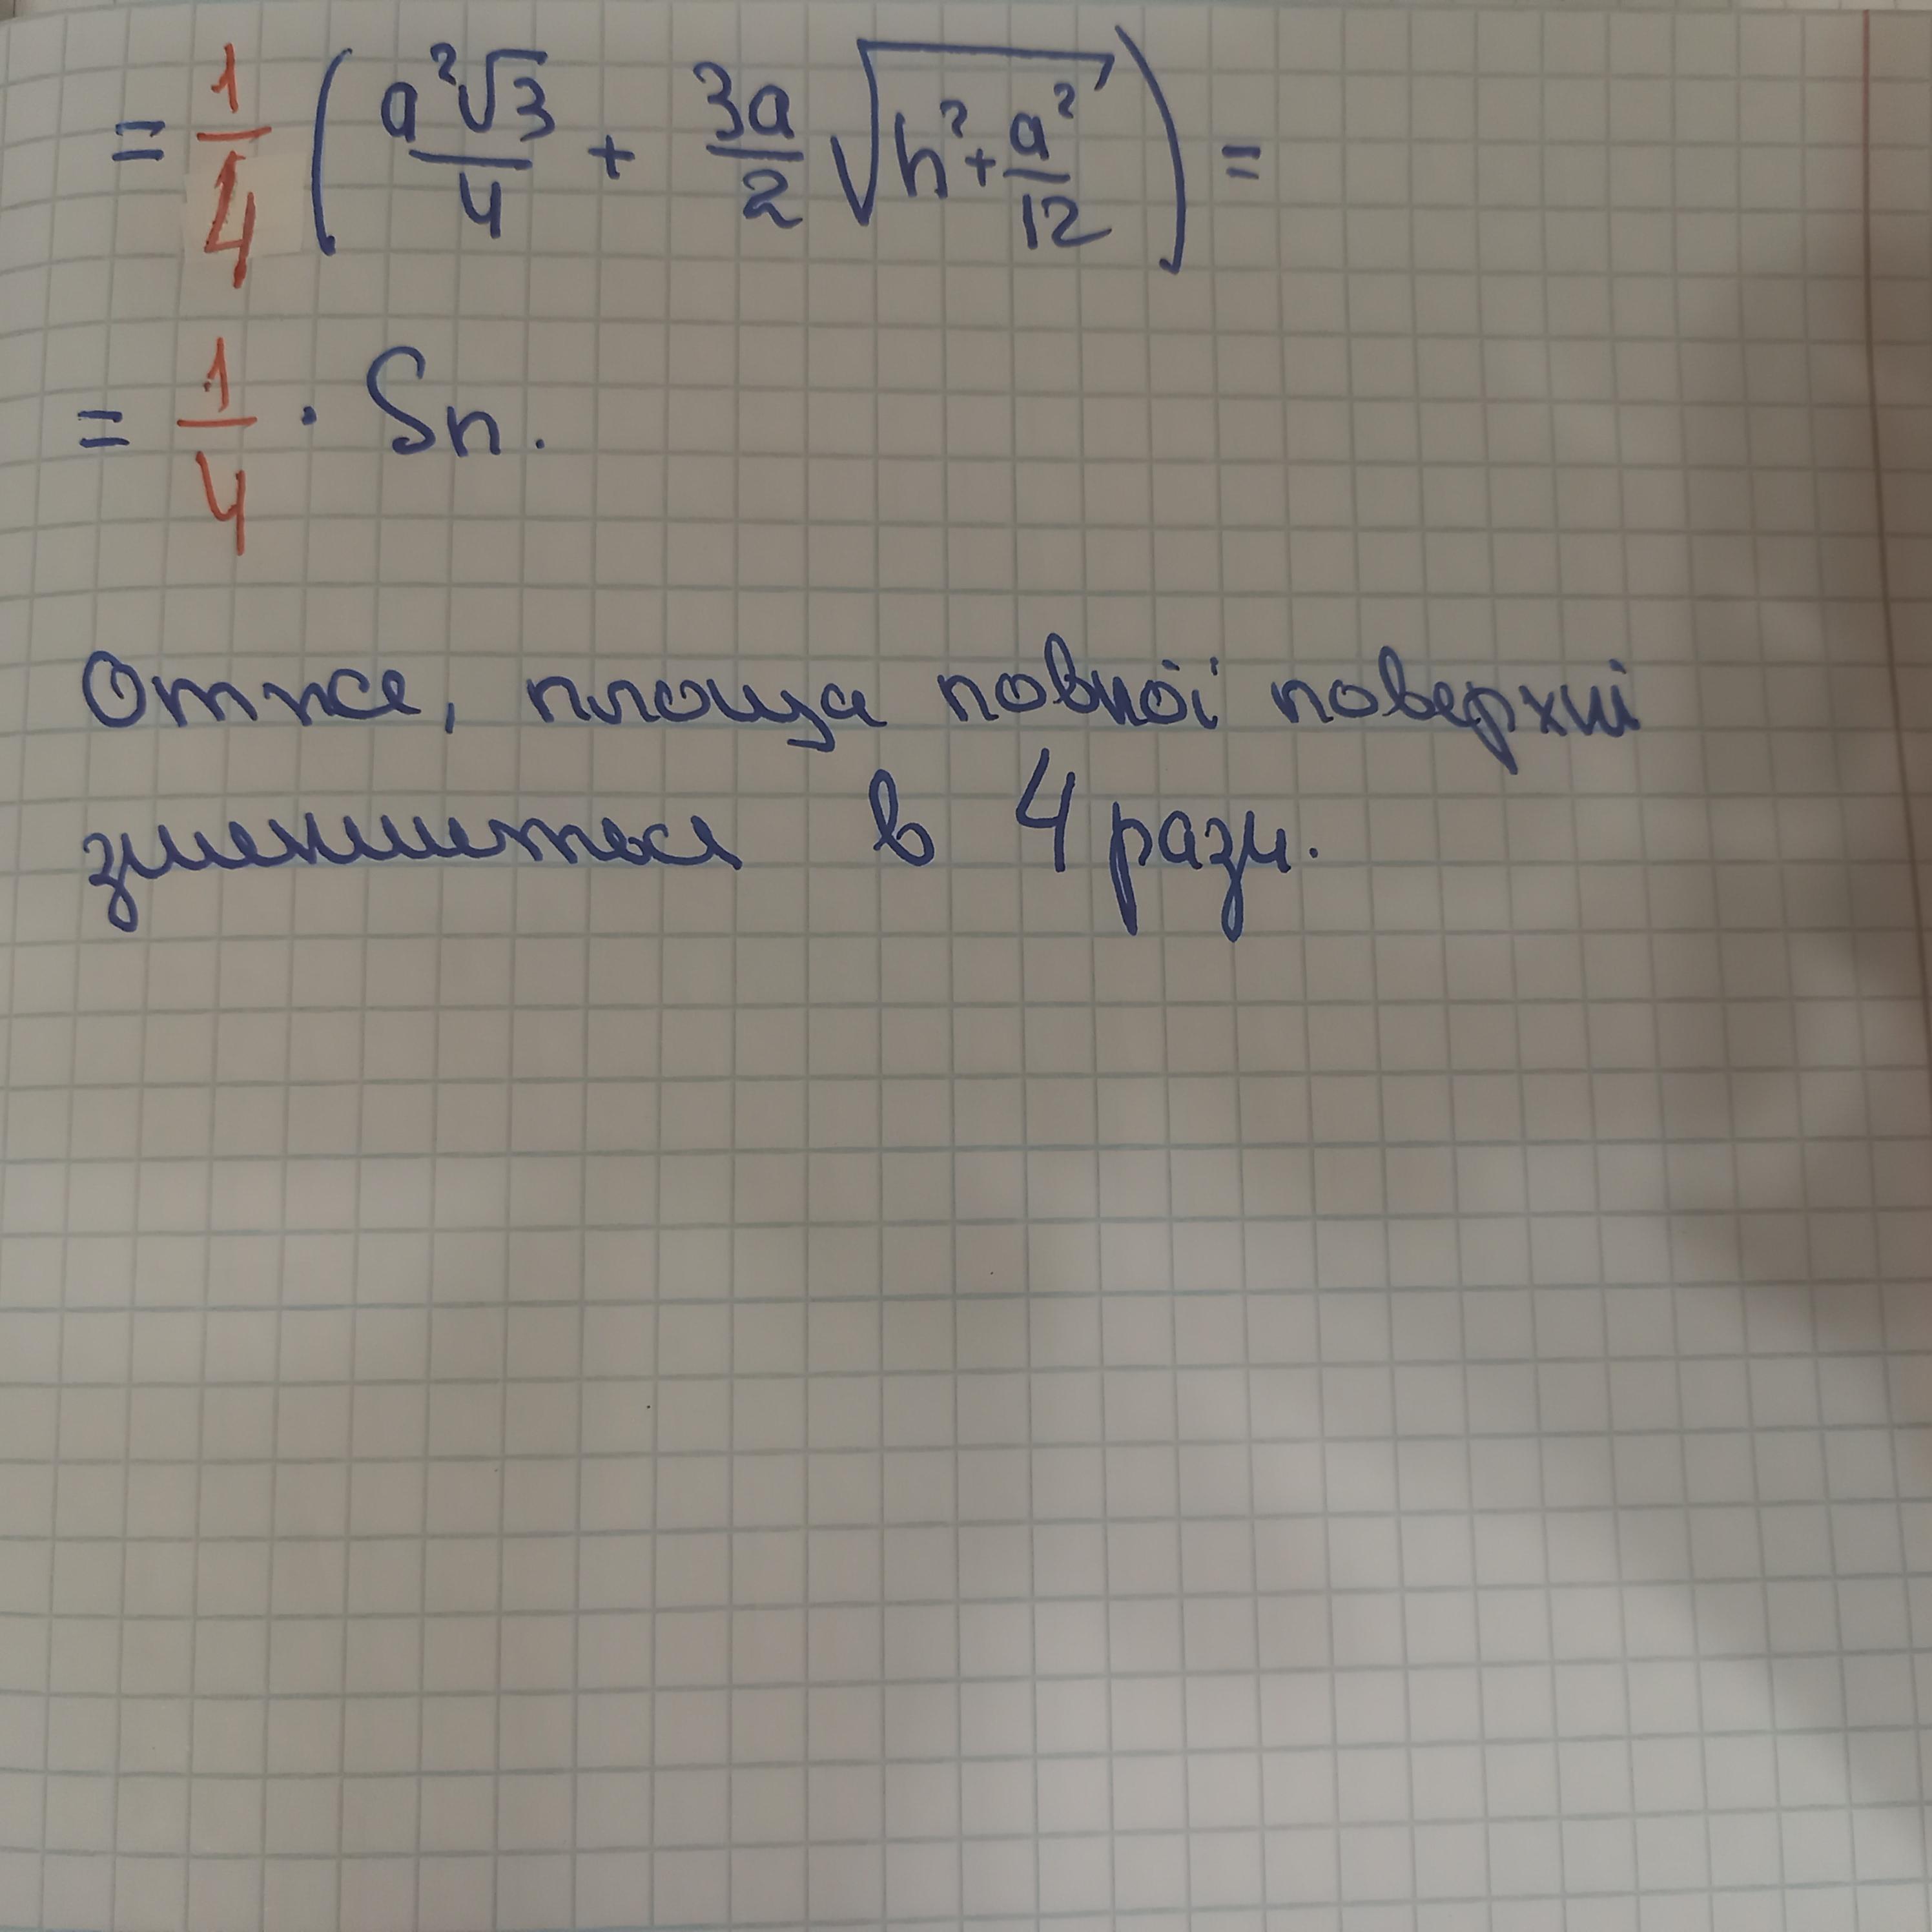 = 1/4 ( a²√3/4 + 3a/2 √(h² + a²/12) ) =
= 1/4 · Sп.
Отже, площа повної поверхні
зменшиться в 4 рази.